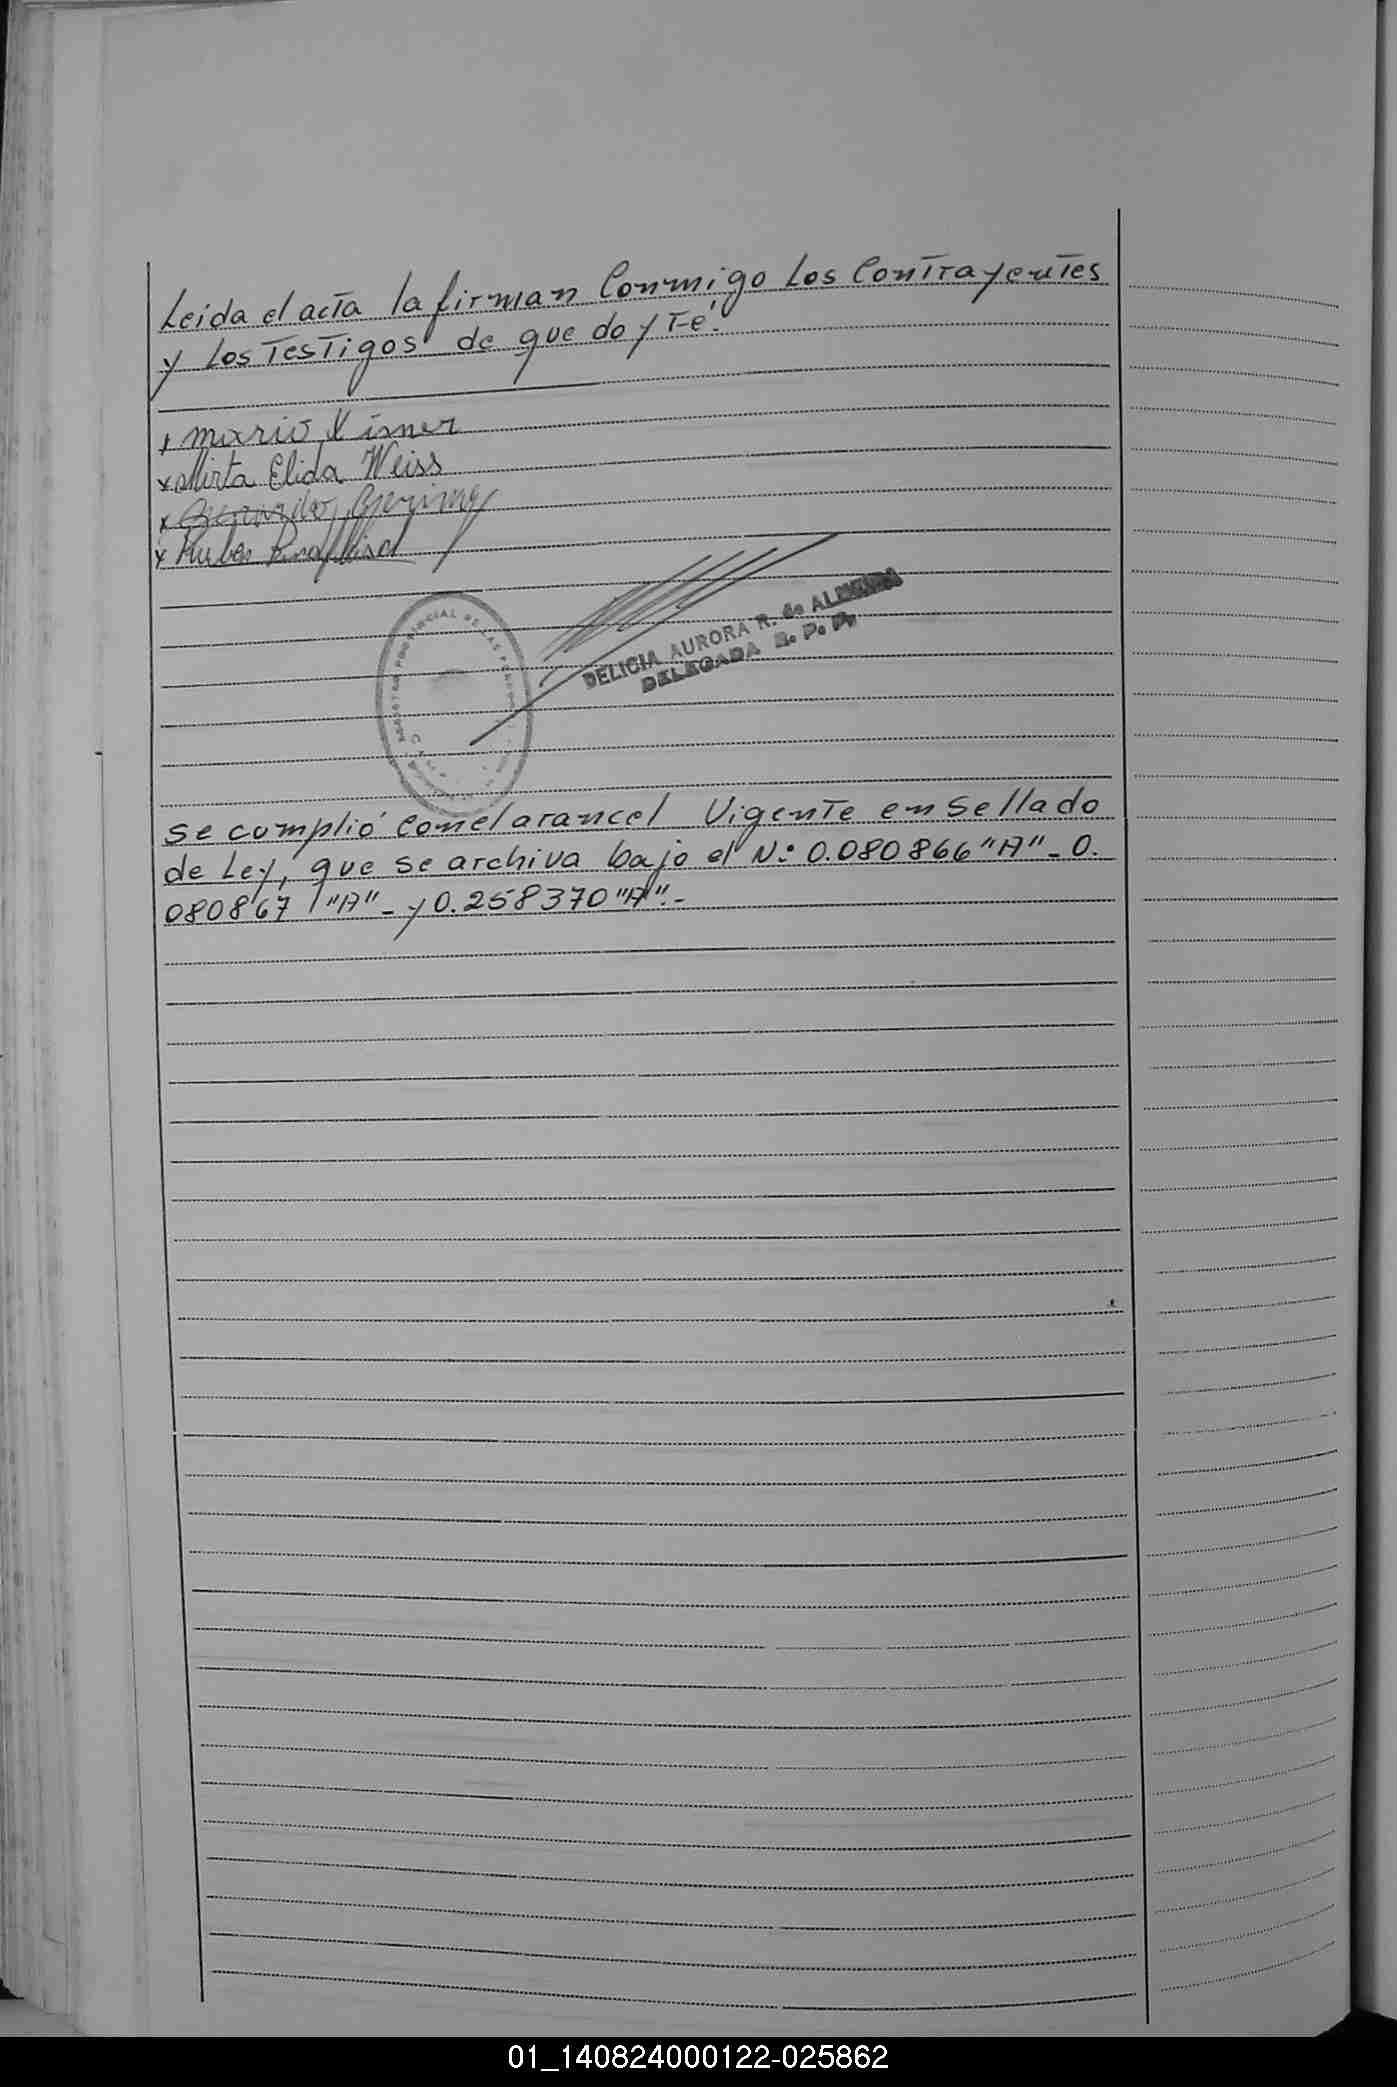 Leida el acta la firman Conmigo Los Contrayentes
y Los Testigos de que doy Fé.
x Mario
x Mirta Elida Weiss
x
x Ruben
PROVINCIAL DE LAS
DELICIA AURORA R. de
DELEGADA E. P. P.
Se cumplió con el arancel Vigente en Sellado
de Ley, que se archiva bajo el N: 0.080866 "A" - 0.
080867 "A" - y 0.258370 "A".-
01_140824000122-025862